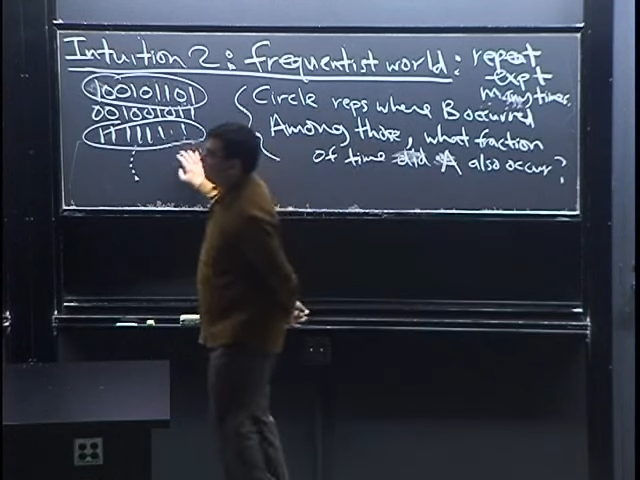 Intuition 2: frequentist world: repeat
expt
many times.
100101101
001001011
11111111
Circle reps where B occurred
Among those, what fraction
of time did A also occur?